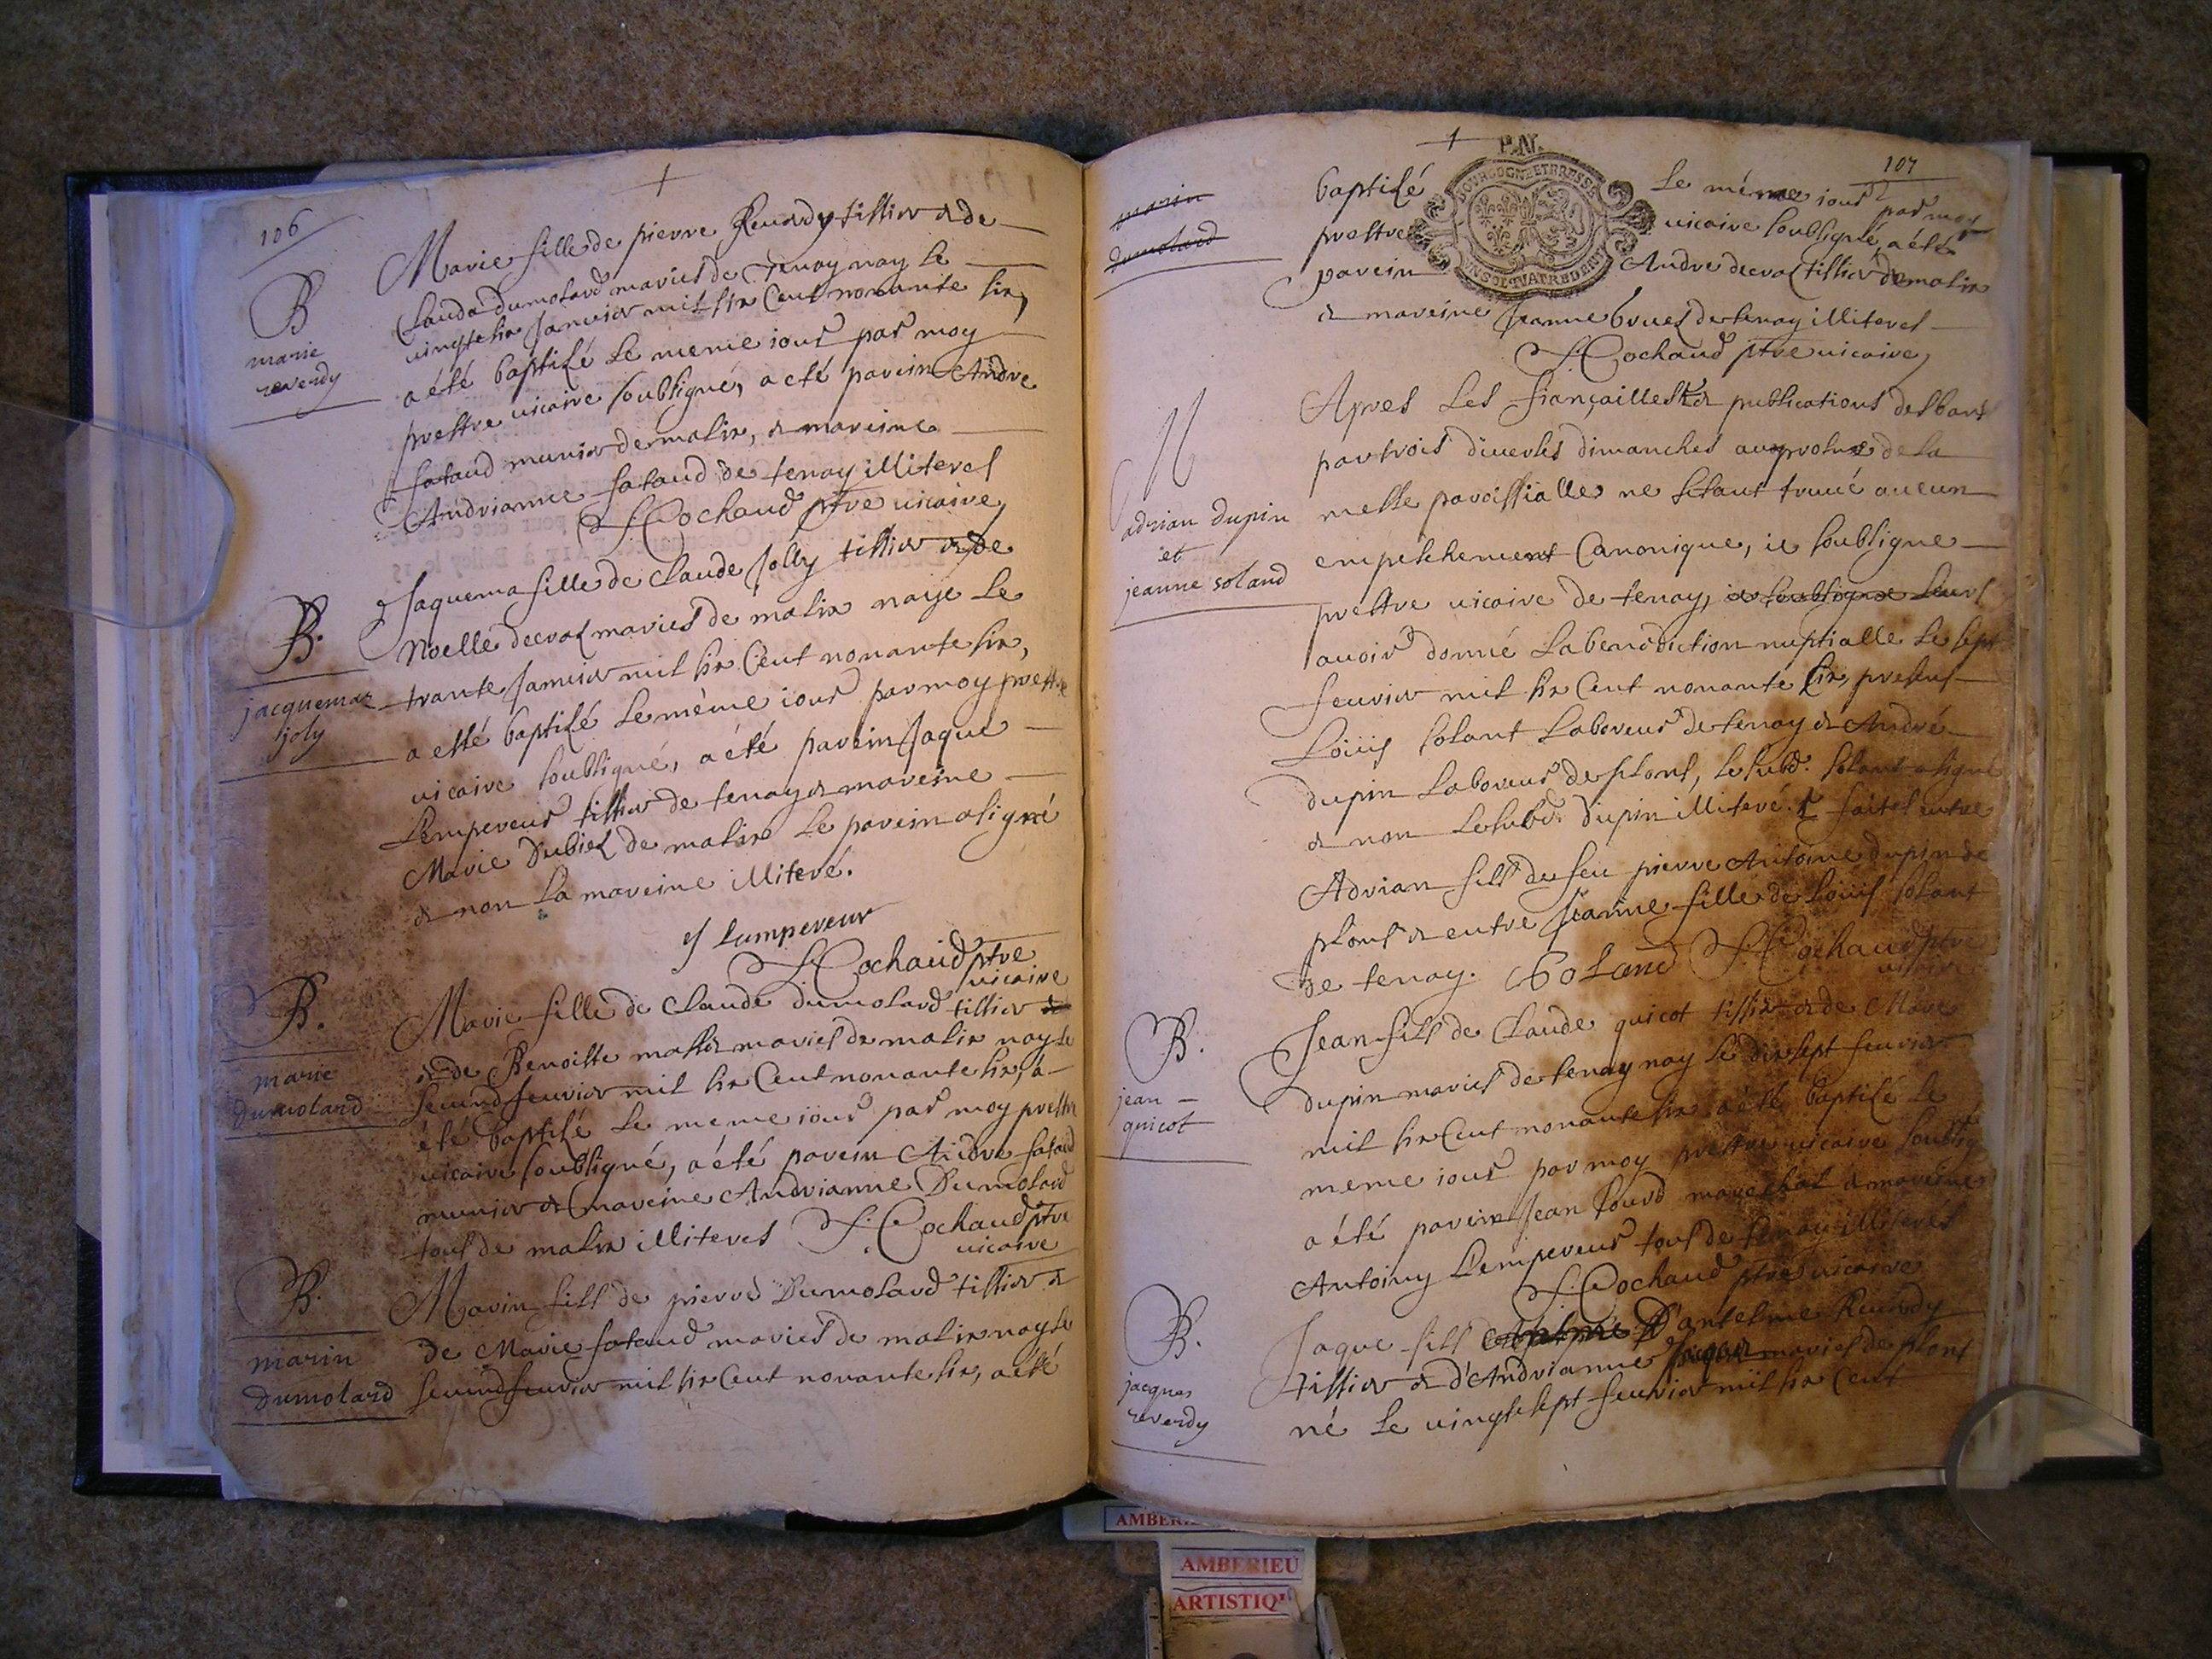 106
B
marie
reverdy
Marie fille de pierre Reuerdy tissier & de
Clauda dumolard mariés de Tenay nay le
vingtehix Januier mil six Cent nonante six,
a été baptisé le meme iour par moy
prestre vicaire soubsigné, a eté parein Andre
fataud munier de malix, & mareine
Andrianne fataud de tenay illiteres
F. Cochaud ptre vicaire
B.
jacquemaz
joly
Jaquema fille de Claude Jolly tissier & de
Noelle decroz mariés de malix naye le
trante Januier mil six Cent nonante six,
a esté baptisé le même iour par moy prestre
vicaire soubsigné, a été parein Jaque
Lempereur tissier de tenay & mareine
Marie Dubiez de malix le parein a signé
& non la mareine illiteré.
J lampereur
F. Cochaud ptre
vicaire
B.
marie
dumolard
Marie fille de Claude dumolard tissier &
& de Benoiste massu mariés de malix nay le
second feurier mil six Cent nonante six, a
été baptisé le meme iour par moy prestre
vicaire soubsigné, a été parein Andre fataud
munier & mareine Andrianne Dumolard
tous de malix illiteres F. Cochaud ptre
vicaire
B.
marin
Dumolard
Marin fils de pierre Dumolard tissier &
de Marie fataud mariés de malix nay le
second feurier mil six Cent nonante six, a eté
107
P.N.
BOVRGOGNE ET BRESSE
marin
dumolard
baptisé le même iour par moy
prestre vicaire soubsigné, a été
parein Andre decroz tissier de malix
& mareine Jeanne brues de tenay illiteres
F. Cochaud ptre vicaire
M
adrian dupin
et
jeanne soland
Apres les fiançailles & publications des bans
par trois diuerses dimanches aux prosnes de la
messe paroissialle ne sestant trouué aucun
empeschement Canonique, ie soubsigne
prestre vicaire de tenay, ie soubsigne leurs
auoir donné la benediction nuptialle le sept
feurier mil six Cent nonante six, presens
Loüis solant laboreur de tenay & André
dupin laboreur de plons, le subd. solant a signé
& non le subd. dupin illiteré. & faites entre
Adrian fils de feu pierre Antoine dupin de
plons & entre Jeanne fille de Loüis solant
de tenay. Soland F. Cochaud ptre
vicaire
B.
jean
quicot
Jean fils de Claude quicot tissier & de Marie
dupin mariés de tenay nay le dixsept feurier
mil six Cent nonante six a été baptisé le
meme iour par moy prestre vicaire soubsig
a été parein Jean sourd marechal & mareine
Antoiny Lempereur tous de tenay illiterés
F. Cochaud ptre vicaire
B.
jacques
reverdy
Jaque fils D'antelme Reuerdy
tissier & d'Andrianne mariés de plons
né le vingtesept feurier mil six Cent
AMBERIEU
ARTISTIQ